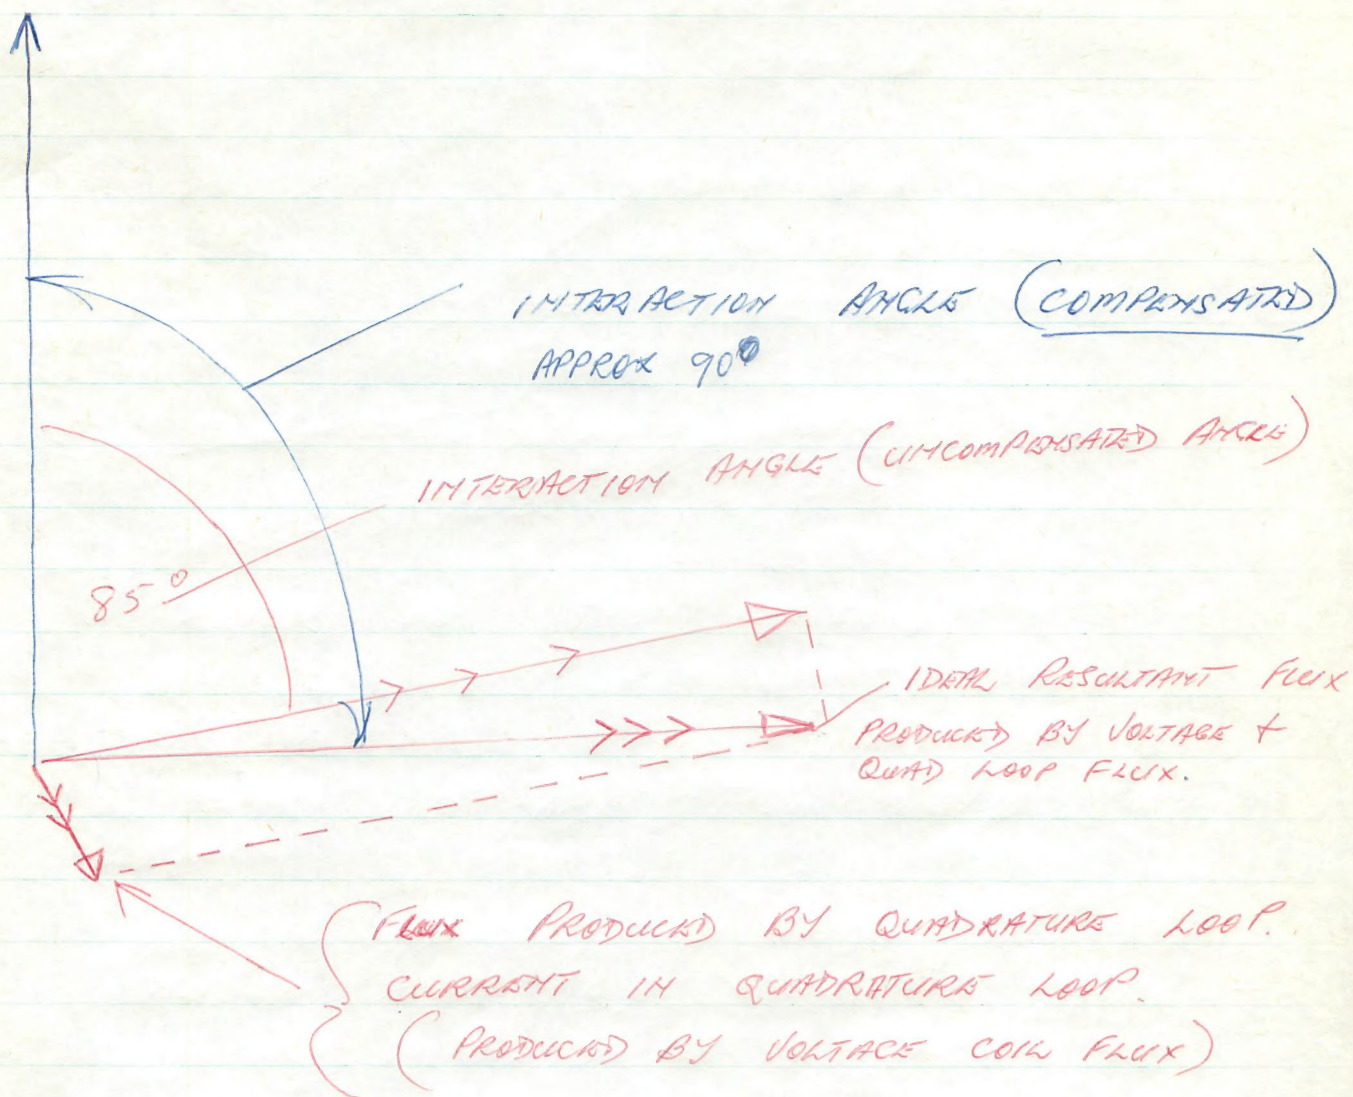 INTERACTION ANGLE (COMPENSATED)
APPROX 90°
INTERACTION ANGLE (UNCOMPENSATED ANGLE)
85°
IDEAL RESULTANT FLUX
PRODUCED BY VOLTAGE +
QUAD LOOP FLUX.
FLUX PRODUCED BY QUADRATURE LOOP.
CURRENT IN QUADRATURE LOOP.
(PRODUCED BY VOLTAGE COIL FLUX)